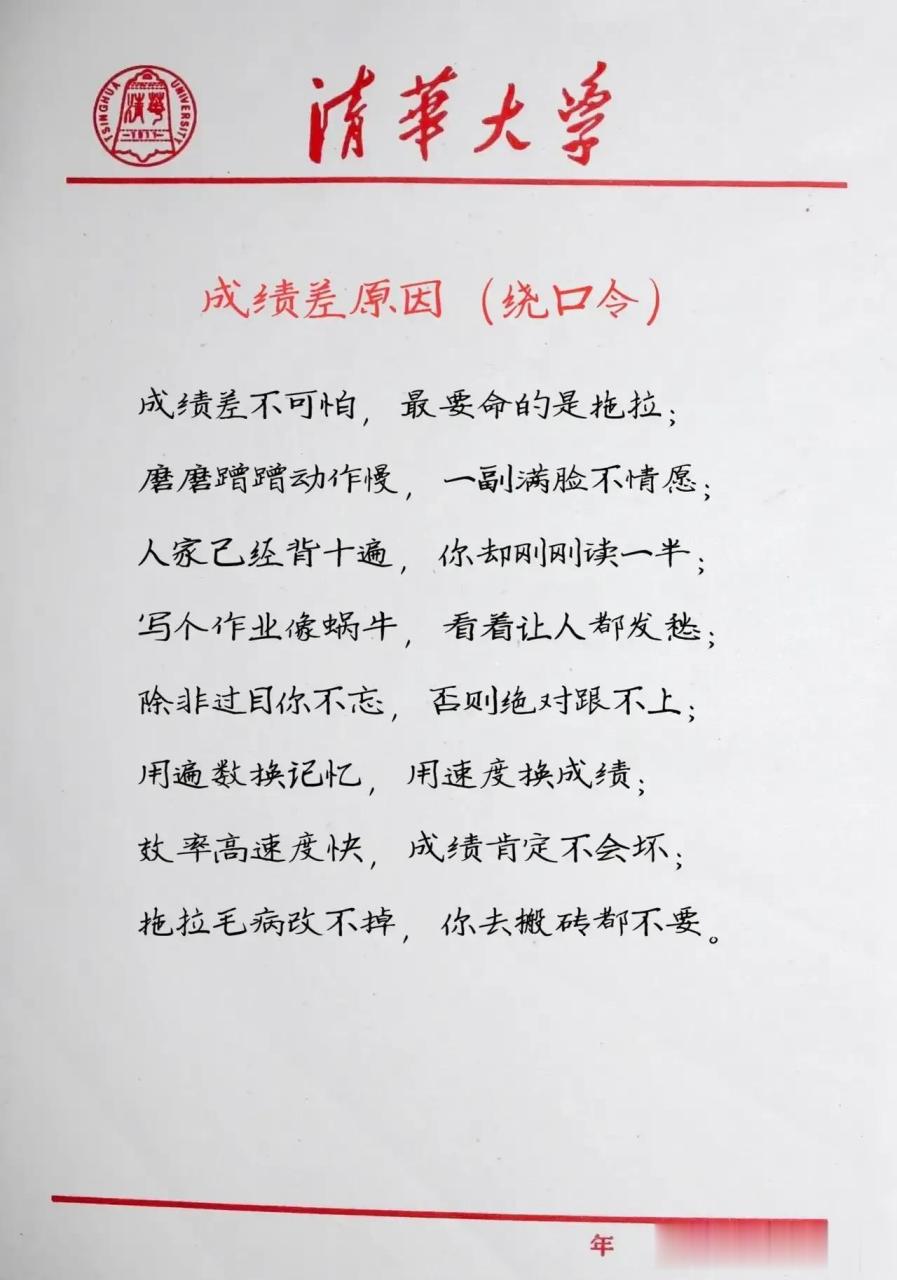 TSINGHUA UNIVERSITY
清華
1911
清華大学
成绩差原因（绕口令）
成绩差不可怕，最要命的是拖拉；
磨磨蹭蹭动作慢，一副满脸不情愿；
人家已经背十遍，你却刚刚读一半；
写个作业像蜗牛，看着让人都发愁；
除非过目你不忘，否则绝对跟不上；
用遍数换记忆，用速度换成绩；
效率高速度快，成绩肯定不会坏；
拖拉毛病改不掉，你去搬砖都不要。
年